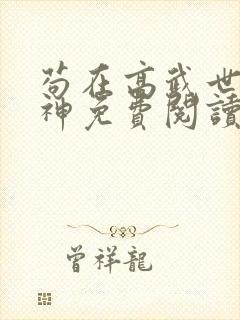 苟在高武世
神免費閱讀
曾祥龍